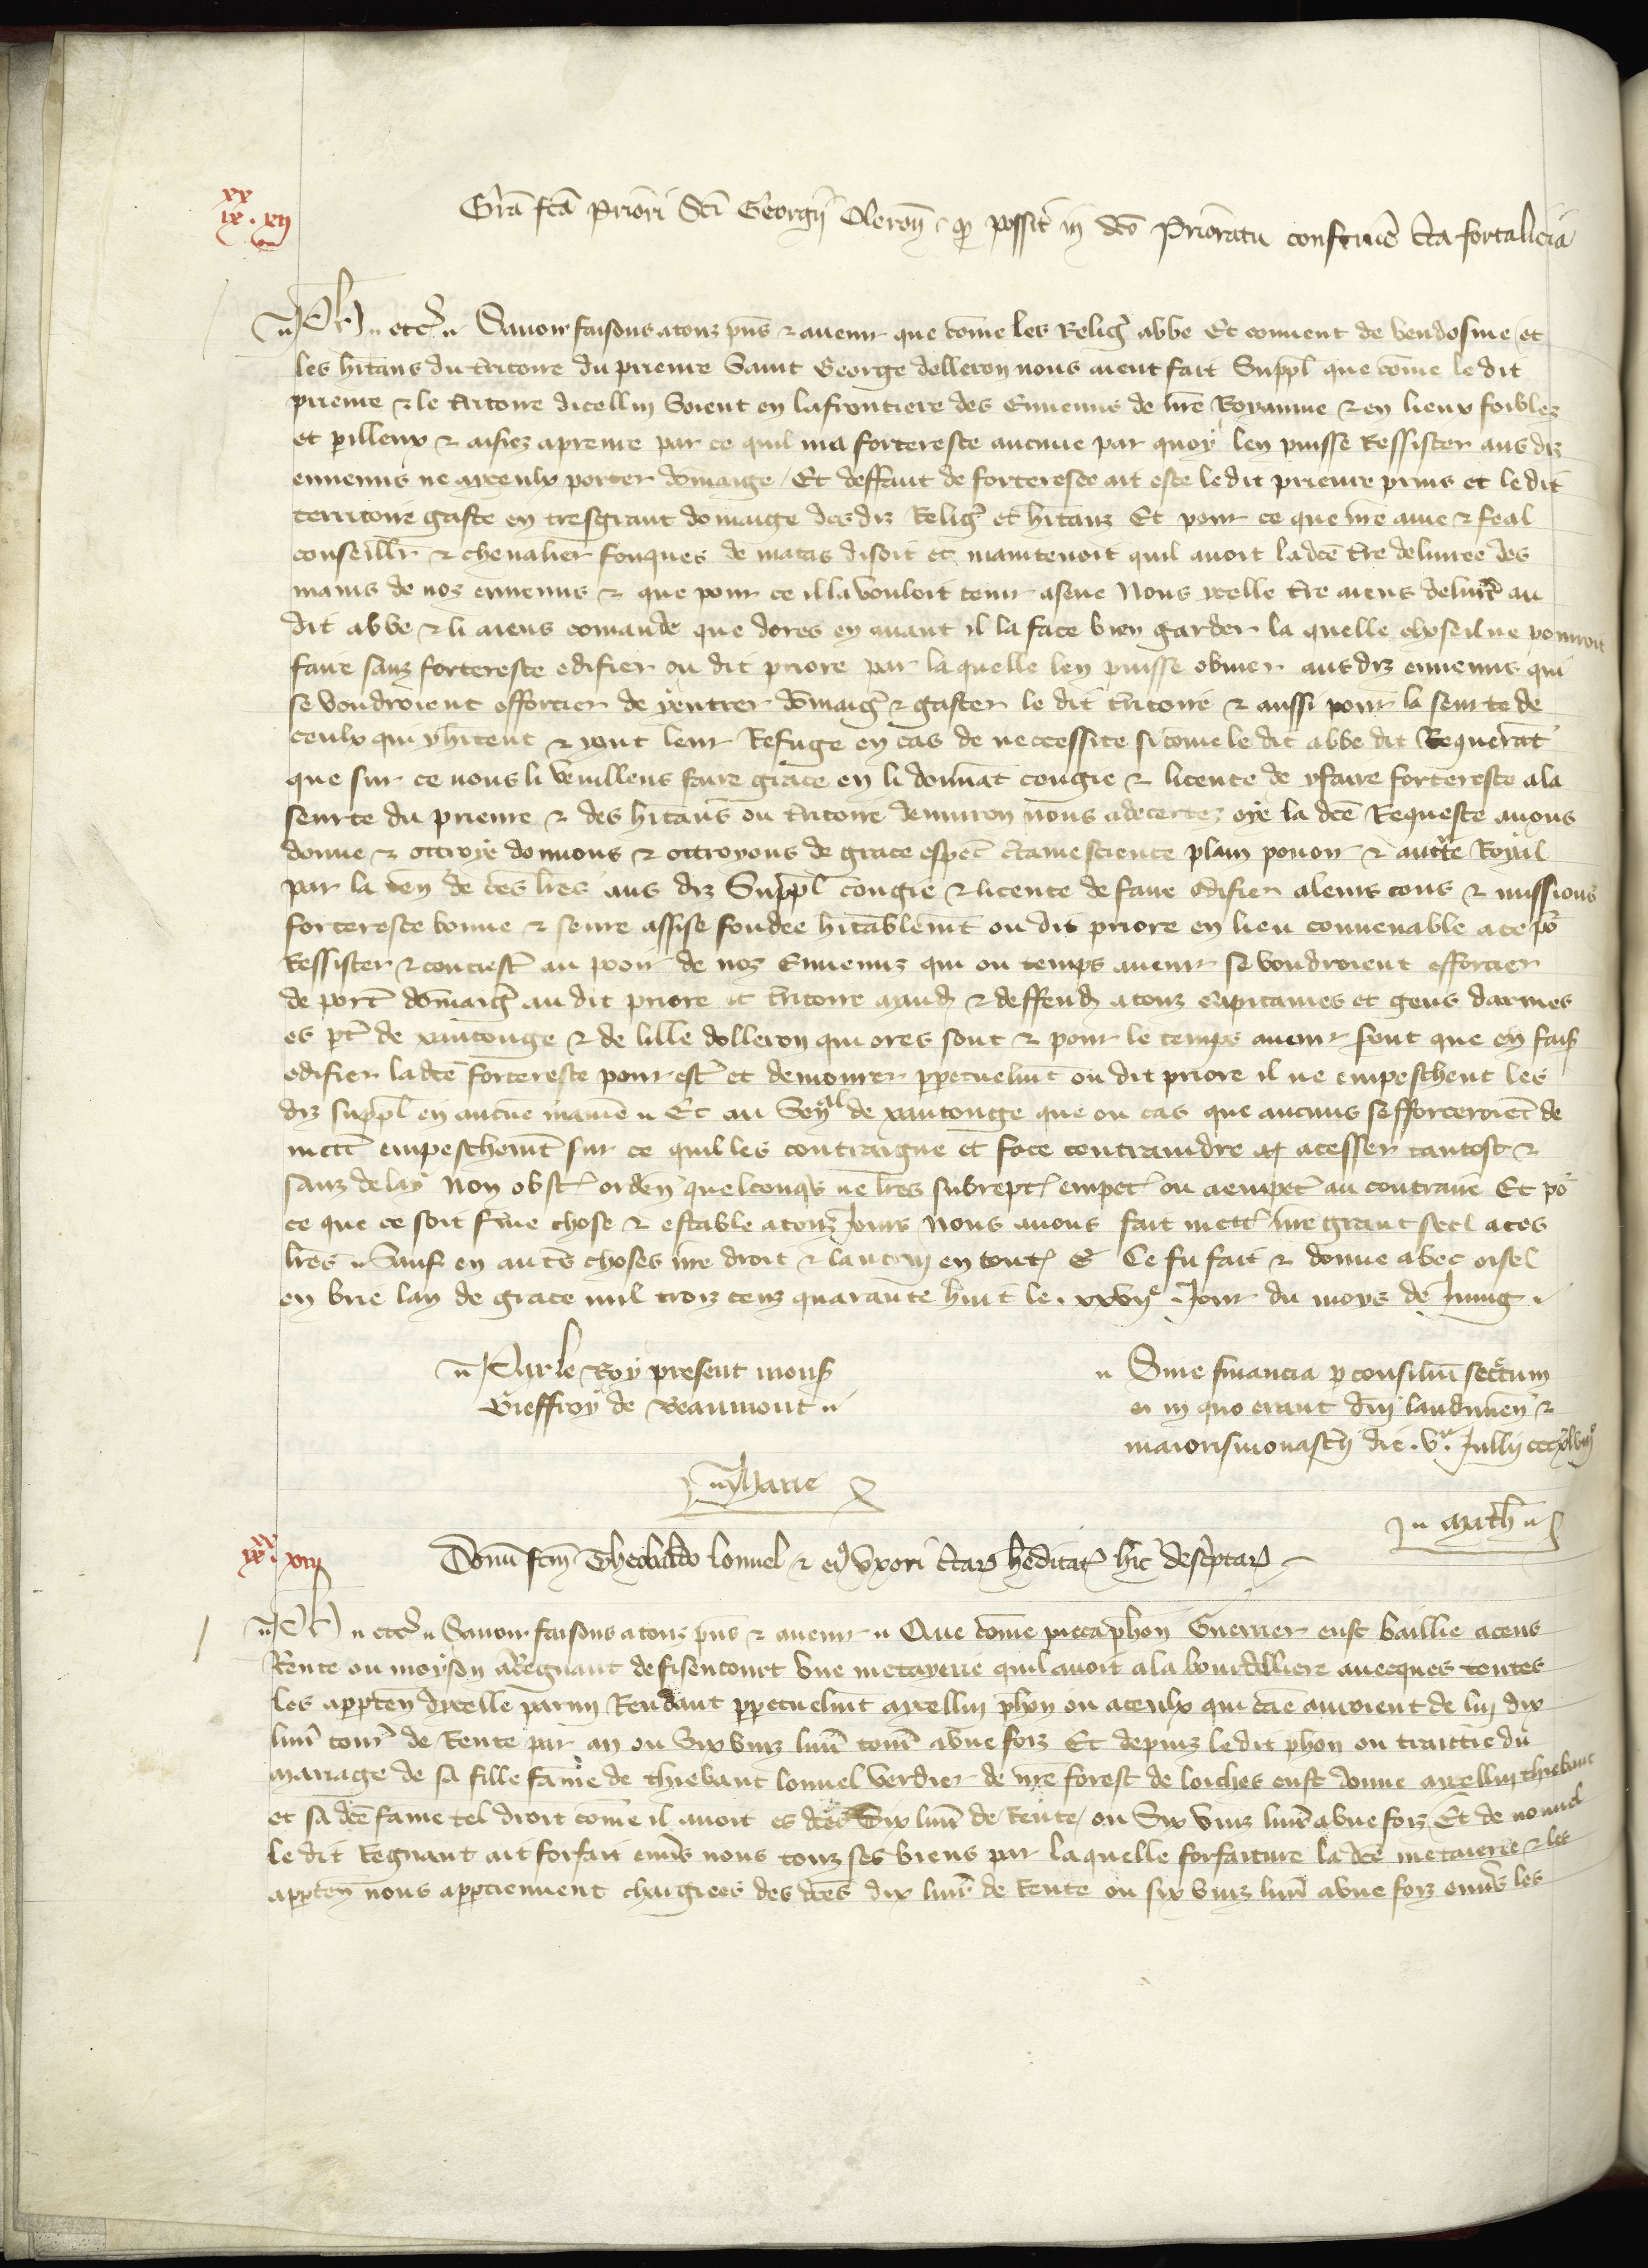 xx
ix . xii
Gra͞ fca͞ Priori Sci͞ Georgii Oleron͞ . qd possit in dco͞ Prioratu construe͞ cta fortalicia
Ph͞ . etc͞ . Sauoir faisons a touz pn͞s ⁊ auenir que co͞me les Relig͛ abbe Et conuent de Vendosme et
les hita͞ns du t͛ritoire du prieure Saint George dolleron nous aient fait Suppl͛ que co͞me le dit
prieure ⁊ le t͛ritoire dicellui Soient en la frontiere des Ennemis de nr͞e Royaume ⁊ en lieux foiblez
et perilleux ⁊ aisiez a prenre par ce quil nia forteresce aucune par quoy len puisse Ressister aus diz
ennemis ne a yceulx porter do͞maige / Et deffaut de forteresce ait este le dit prieure prins et le dit
territoire gaste en tresgrant domaige des diz Relig͛ et hita͞nz Et pour ce que nr͞e ame ⁊ feal
conseill͛r ⁊ cheualier fouques de matas disoit et maintenoit quil auoit la dce͞ t͛re deliuree des
mains de noz ennemis ⁊ que pour ce il la vouloit tenir a seue Nous ycelle t͛re aiens deliure au
dit abbe ⁊ li aiens comande que dores en auant il la face bien garder la quelle chose il ne pourroit
faire sanz forteresce edifier ou dit priore par la quelle len puisse obuier aus diz ennemis qui
se voudroient efforcier de y entrer do͞maig͛ ⁊ gaster le dit t͛ritoire ⁊ aussi pour la seurte de
ceulx qui y hi͞tent ⁊ y ont leur Refuge en cas de neccessite si come le dit abbe dit Requera͞t
que sur ce nous li veuillens faire grace en li donna͞t congie ⁊ licence de y faire forteresce a la
seurte du prieure ⁊ des hita͞ns ou t͛ritoire denuiron nous adecertez oye la dce͞ Requeste auons
donne ⁊ ottroye donnons ⁊ ottroyons de grace espec͛ c͛taine science plain pouoir ⁊ auct͛te Royal
par la ten͛ de ces lr͞es aus diz Suppl͛ congie ⁊ licence de faire edifier a leurs cous ⁊ missions
forteresce bonne ⁊ seure assise fondee hita͞blem͞t ou dit priore en lieu conuenable a ce po͛
Ressister ⁊ contrest͛ au pooir de noz Ennemiz qui ou temps auenir se voudroient efforcier
de port͛ do͞maig͛ au dit priore et t͛ritoire mand͛ ⁊ deffend͛ a touz Capitaines et gens darmes
es pt͛ de xantonge ⁊ de lille dolleron qui ores sont ⁊ pour le temps auenir s͛ont que en fais͛
edifier la dce͞ forteresce pour est͛ et demourer perpetuelm͞t ou dit priore il ne empeschent les
diz suppl͛ en aucune manie͛ Et au Sen͛al de xantonge que ou cas que aucuns sefforceroiet de
mett͛ empeschem͞t sur ce quil les contraigne et face contraindre a cesser tantost ⁊
sanz delay Non obst͛ orden͛ quelconqs͛ ne lr͞es subrept͛ empet͛ ou a empet͛ au contraire Et po͛
ce que ce soit ferme chose ⁊ estable a touz jours Nous auons fait mett͛ nr͞e grant seel a ces
lr͞es . Sauf en aut͛s choses nr͞e droit ⁊ lautrui en tout͛ ⁊c͛ Ce fu fait ⁊ donne a bec oisel
en brie lan de grace mil troiz cenz quarante huit le . xxvije . Jour du moys de Juing .
Par le Roy present mons͛
Gieffroy de Beaumont .
Marie
Sine financia p͛ consiliu͞ sec͛tum
ei in quo erant dn͞i laudunen͛ ⁊
maiorismonast͛ii die . va . Jullii cccxlviijo
Math͛
xx
ix . xiij
Donu͞ fcm͞ Theobaldo lonnel ⁊ ei9 Vxori c͛tar͛ hereditat͛ hic desc͛ptar͛
Ph͞ . etc͞ . Sauoir faisons a touz pn͞s ⁊ auenir . Que co͞me pieca ph͞on Guerrier eust baillie a cens
Rente ou moyson a Regnaut de fisencourt vne metayerie quil auoit a la bourdilliere auecques toutes
les apperten͛ dycelle parmi Rendant perpetuelm͞t a ycellui ph͞on ou a ceulx qui cae͞ auroient de lui dix
liur͛ tour͛ de Rente par an ou Six vinz liur͛ tour͛ a vne foiz Et depuiz le dit ph͞on ou traittie du
mariage de sa fille fame de thiebaut lonnel verdier de nr͞e forest de loiches eust donne a ycellui thiebaut
et sa dce͞ fame tel droit come il auoit es dces͞ dix liur͛ de Rente / ou Six vinz liur͛ a vne foiz Et de nouuel
le dit Regnaut ait forfait enu͛s nous touz ses biens par la quelle forfaiture la dce͞ metaierie ⁊ les
apperten͛ nous appartiennent chargiees des dces͞ dix liur͛ de Rente ou six vinz liur͛ a vne foiz enu͛s les